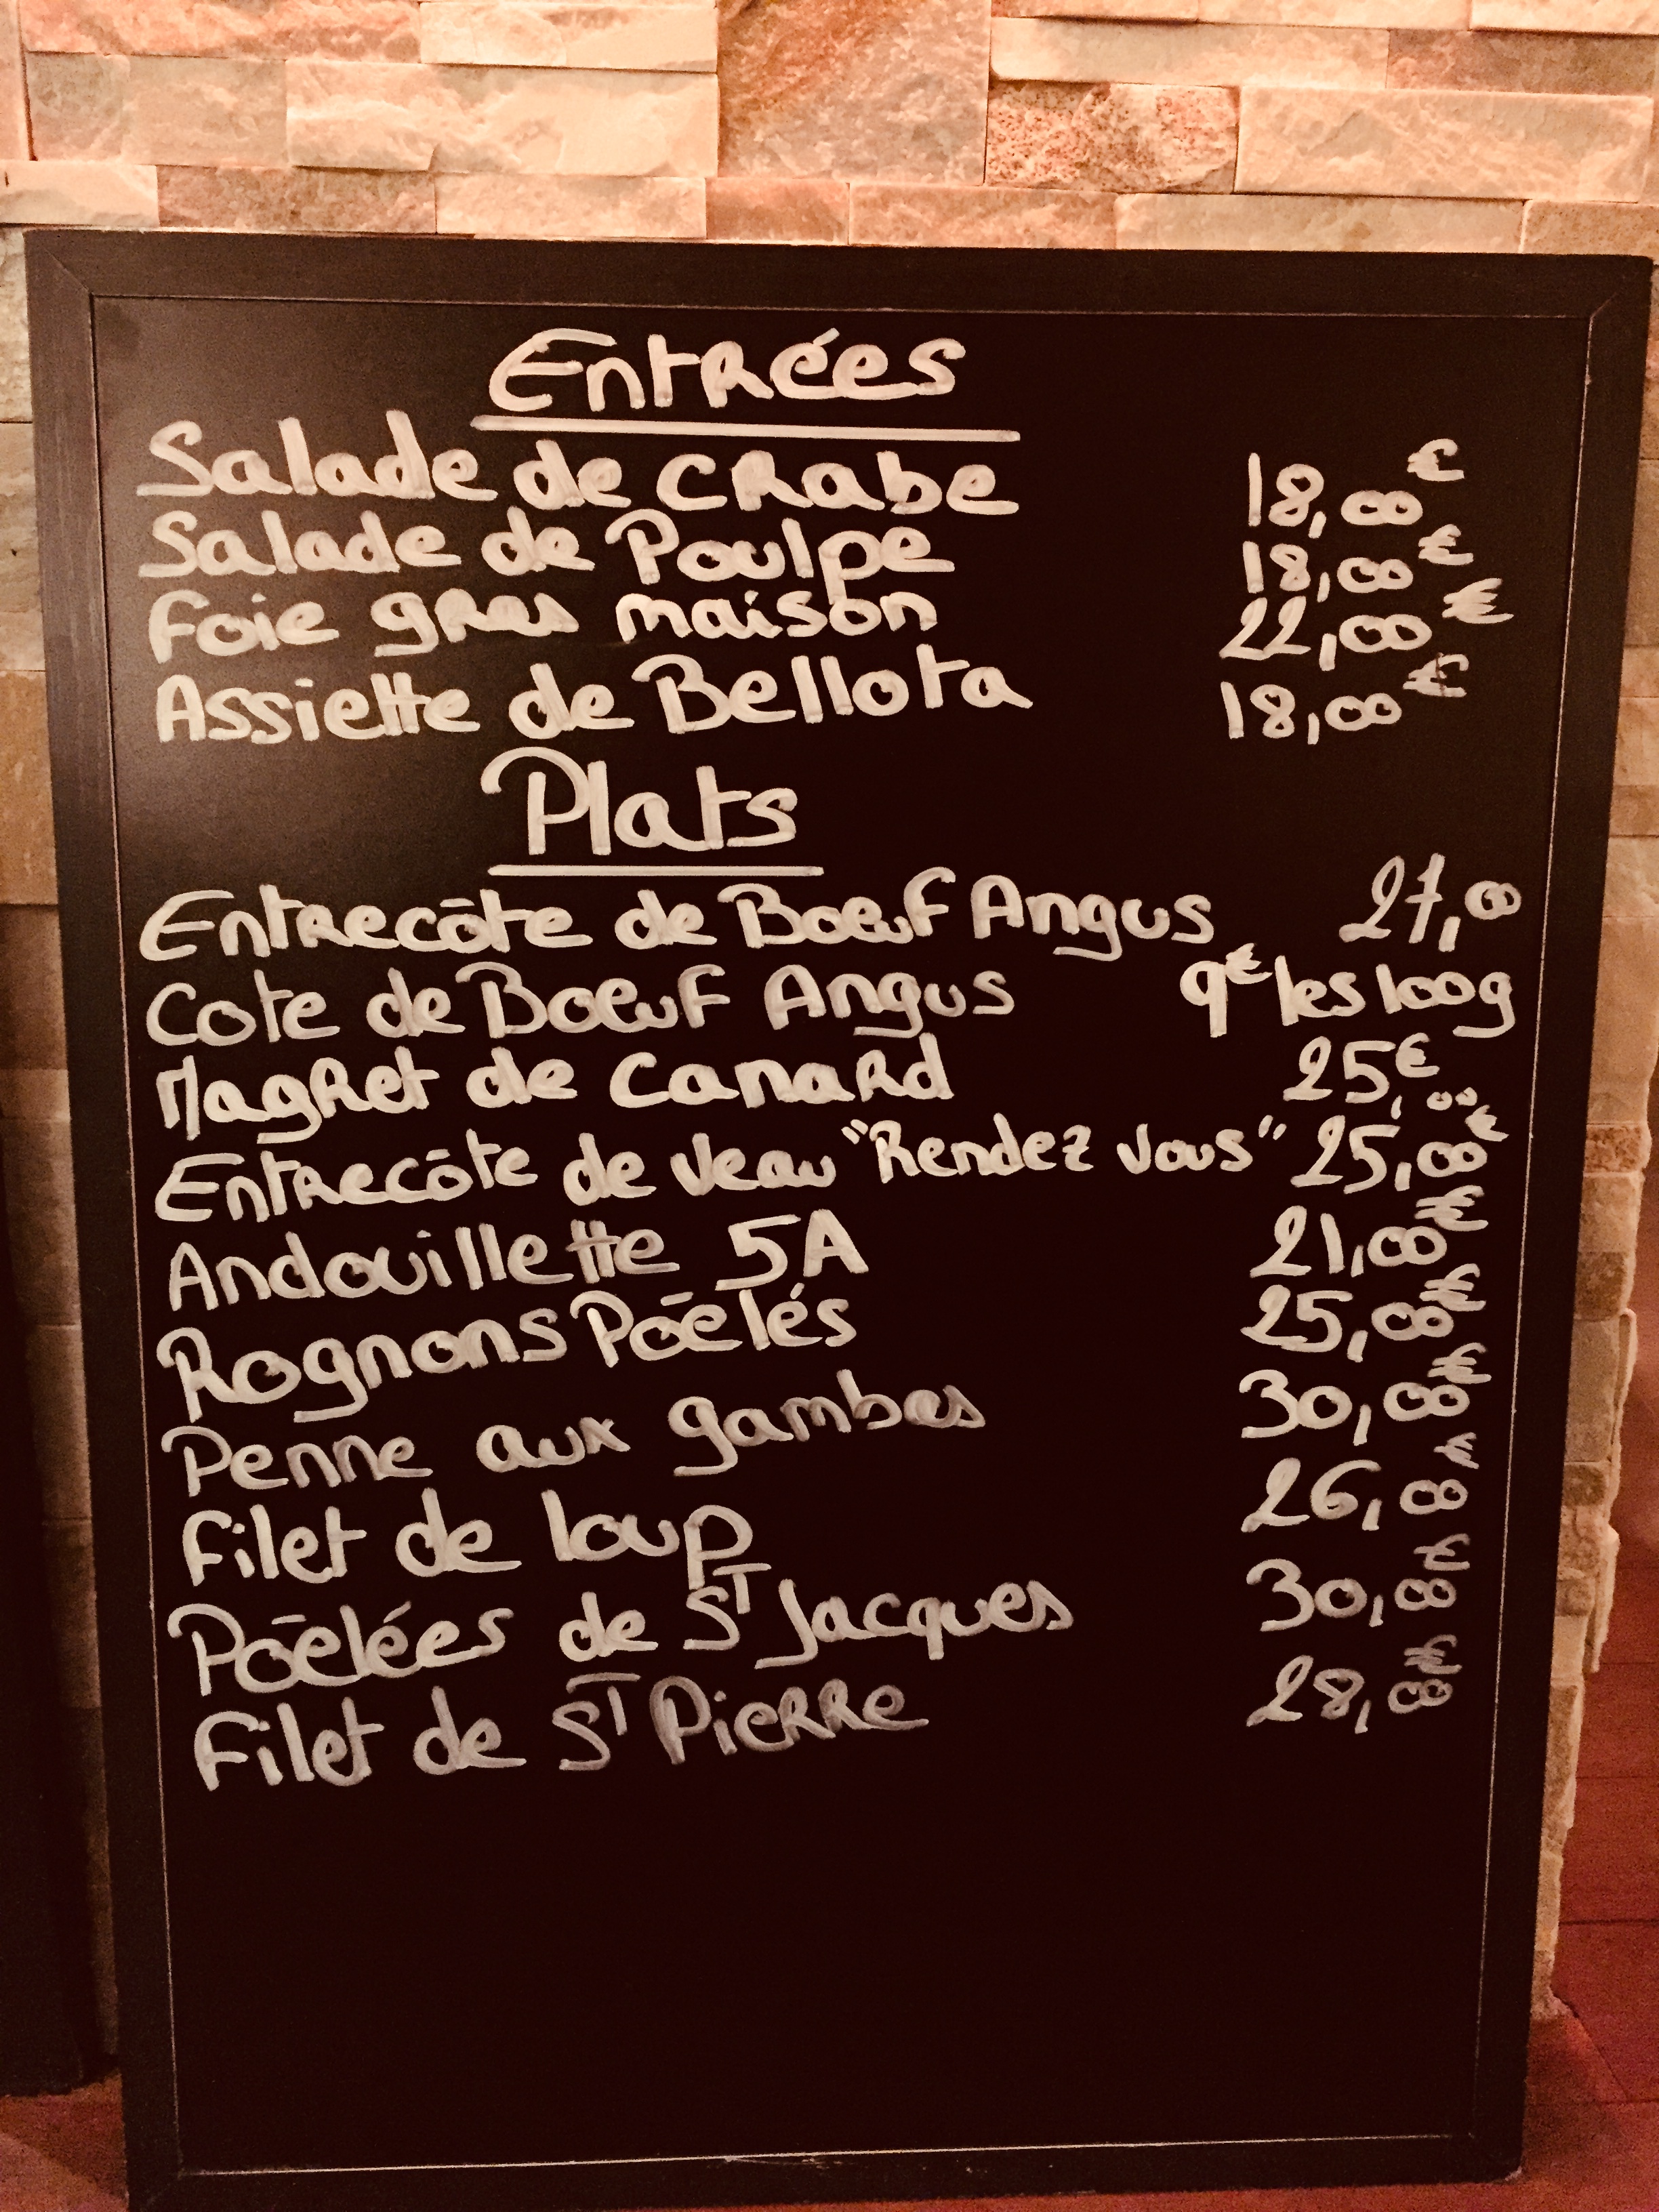 Entrées
Salade de crabe 18,00€
Salade de Poulpe 18,00€
Foie gras maison 22,00€
Assiette de Bellota 18,00€
Plats
Entrecôte de Boeuf Angus 27,00
Cote de Boeuf Angus 9€ les 100g
Magret de Canard 25,00€
Entrecôte de veau "Rendez vous" 25,00€
Andouillette 5A 21,00€
Rognons Poêlés 25,00€
Penne aux gambas 30,00€
Filet de loup 26,00€
Poêlées de St Jacques 30,00€
Filet de St Pierre 28,00€